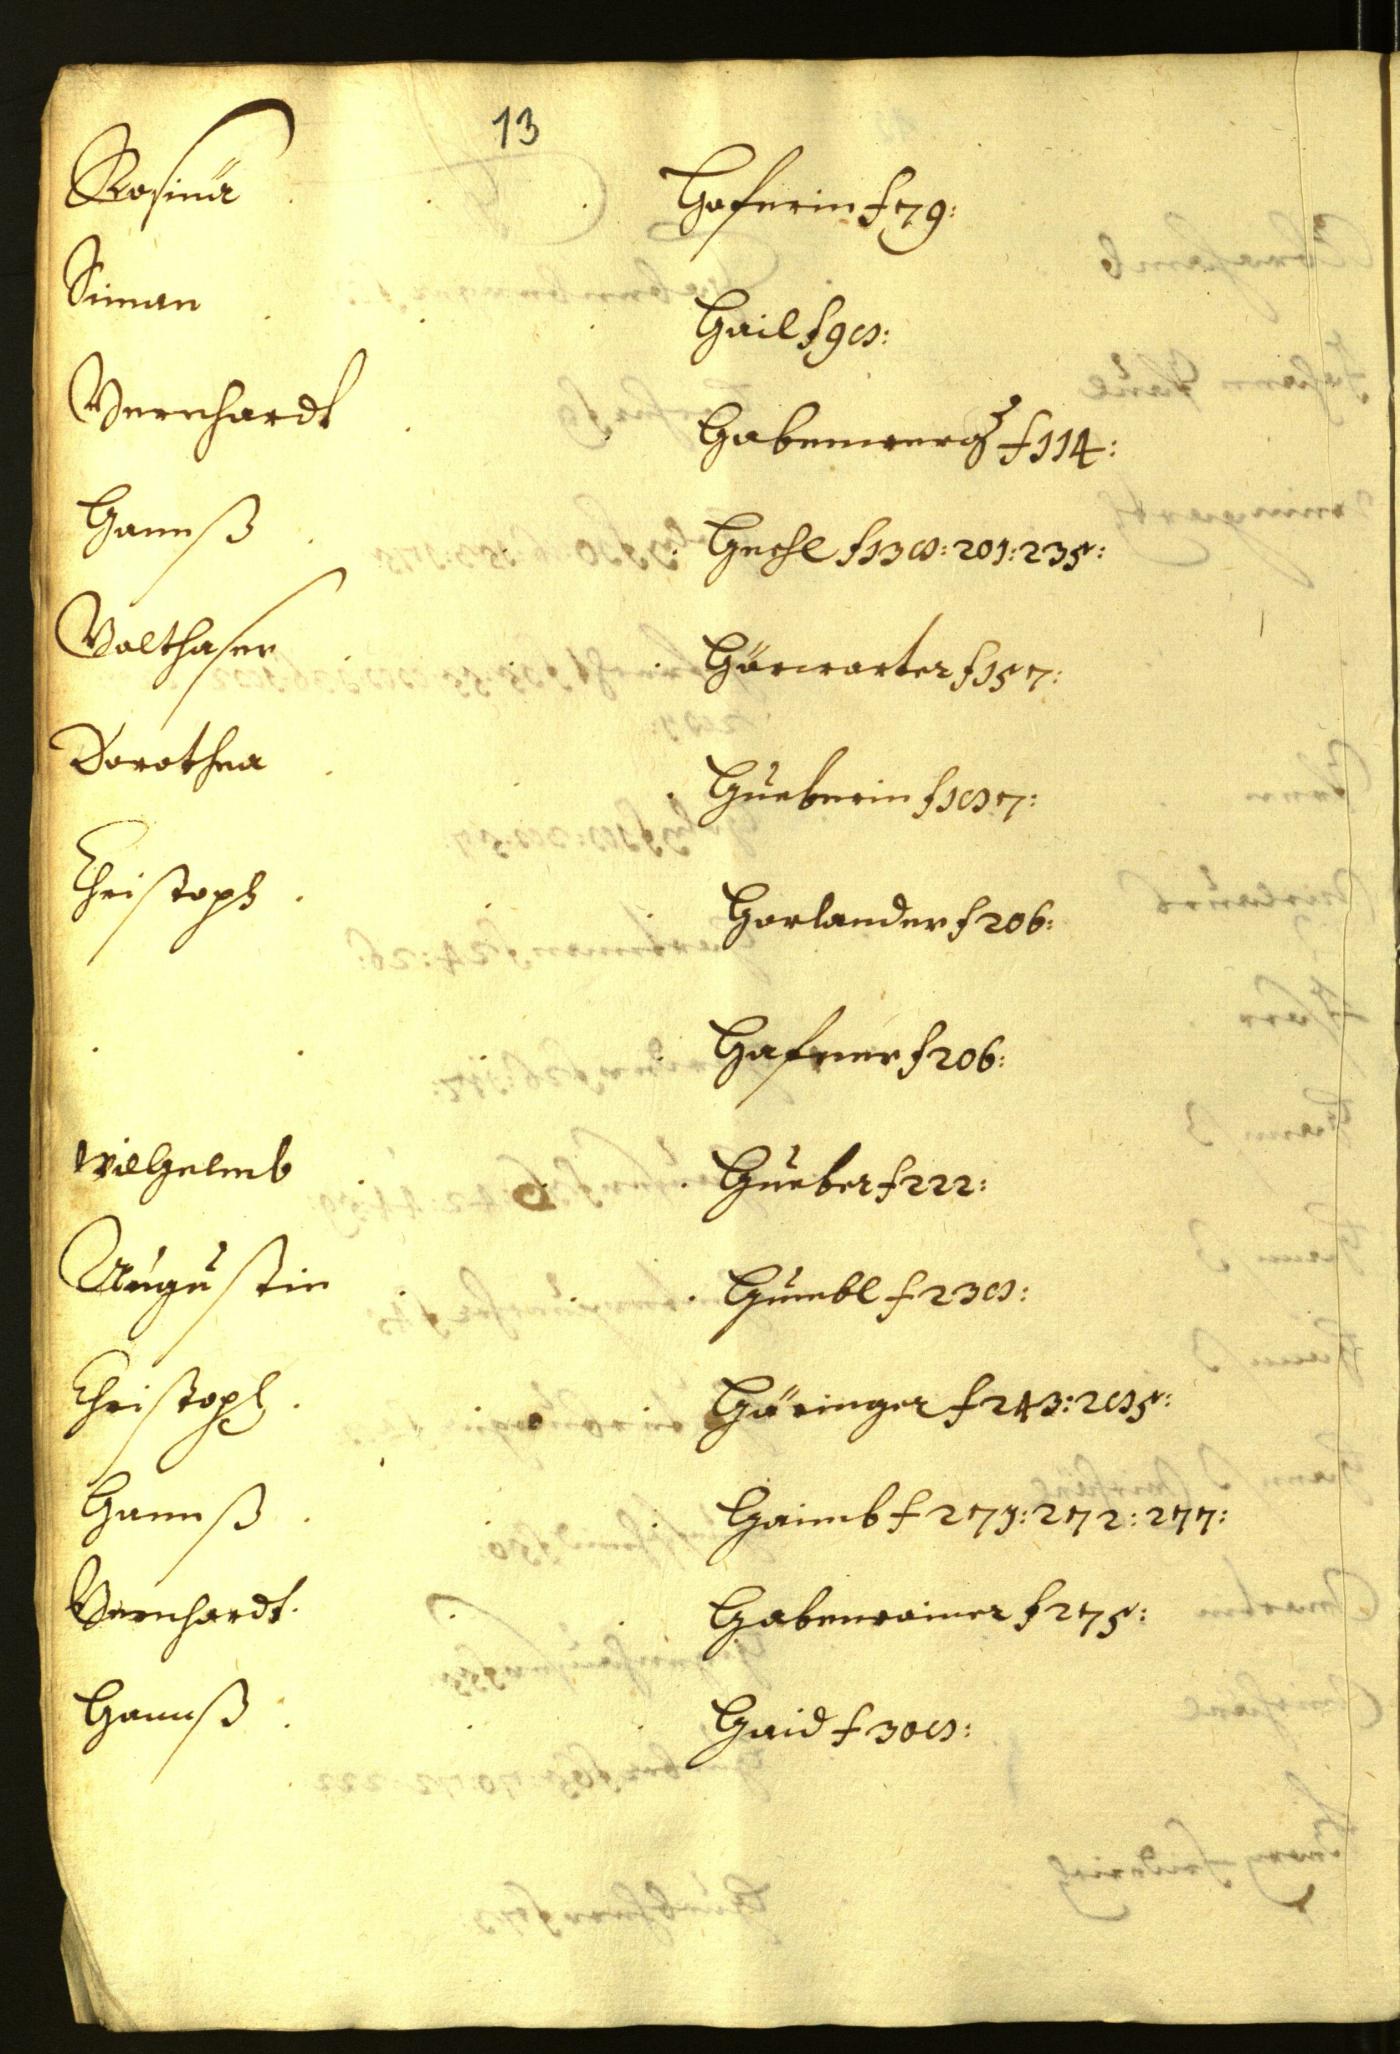 13
Rosina Haferin f 79:
Siman Hail f 98:
Bernhardt Habenwerg f 114:
Hannß Hechl f 138: 201: 235:
Balthaser Härwarter f 157:
Dorothea Hueberin f 187:
Christoph Horlander f 206:
Hafner f 206:
Wilhelmb Hueber f 222:
Augustin Humbl f 238:
Christoph Häringer f 243: 285:
Hannß Haimb f 271: 272: 277:
Bernhardt Habenrainer f 275:
Hannß Haid f 308: